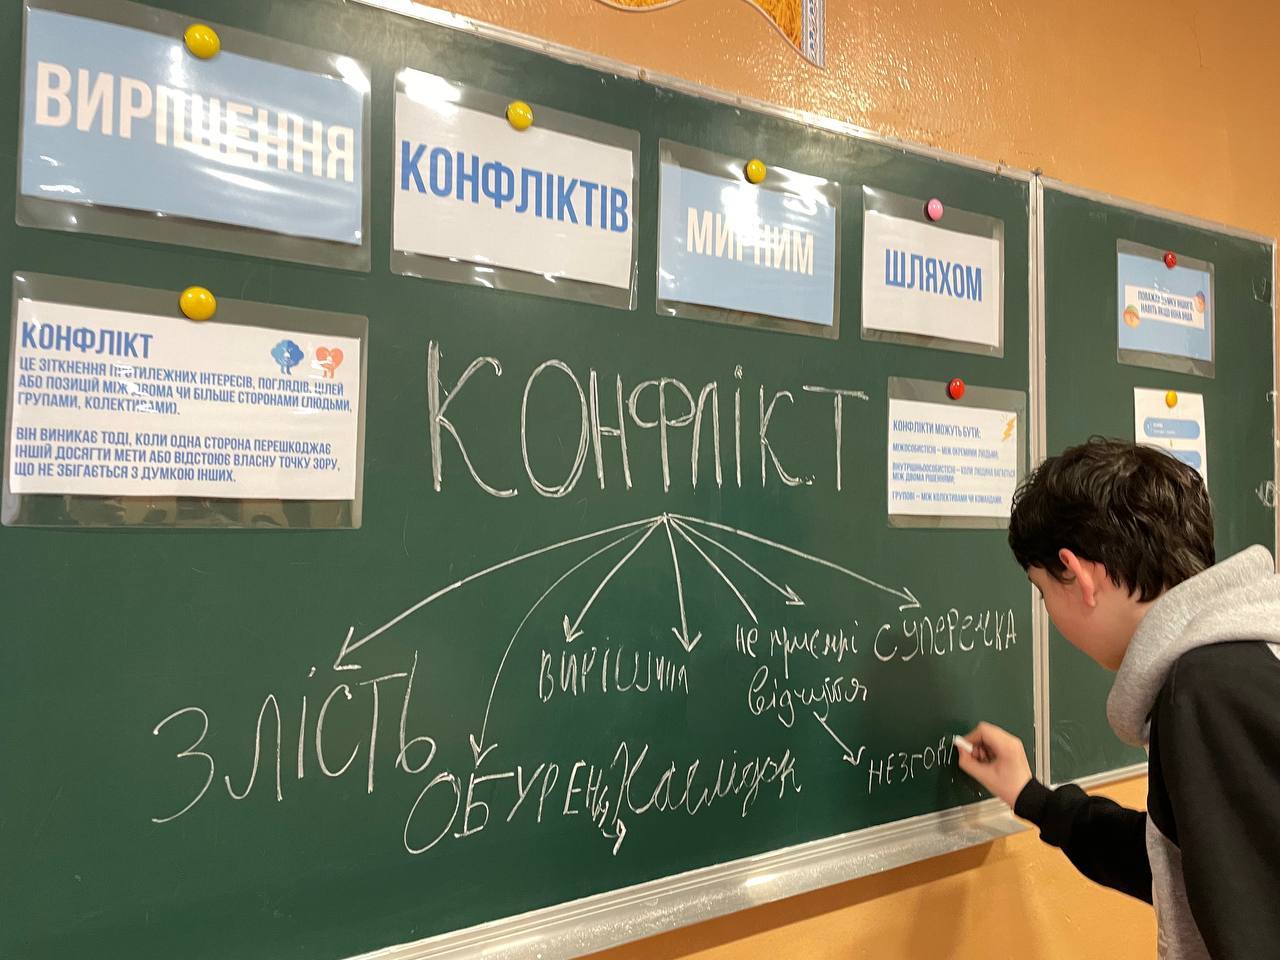 ВИРІШЕННЯ
КОНФЛІКТІВ
МИРНИМ
ШЛЯХОМ
КОНФЛІКТ
ЦЕ ЗІТКНЕННЯ ПРОТИЛЕЖНИХ ІНТЕРЕСІВ, ПОГЛЯДІВ, ЦІЛЕЙ
АБО ПОЗИЦІЙ МІЖ ДВОМА ЧИ БІЛЬШЕ СТОРОНАМИ (ЛЮДЬМИ,
ГРУПАМИ, КОЛЕКТИВАМИ).
ВІН ВИНИКАЄ ТОДІ, КОЛИ ОДНА СТОРОНА ПЕРЕШКОДЖАЄ
ІНШІЙ ДОСЯГТИ МЕТИ АБО ВІДСТОЮЄ ВЛАСНУ ТОЧКУ ЗОРУ,
ЩО НЕ ЗБІГАЄТЬСЯ З ДУМКОЮ ІНШИХ.
КОНФЛІКТ
КОНФЛІКТИ МОЖУТЬ БУТИ:
МІЖОСОБИСТІСНІ – МІЖ ОКРЕМИМИ ЛЮДЬМИ;
ВНУТРІШНЬООСОБИСТІСНІ – КОЛИ ЛЮДИНА ВАГАЄТЬСЯ
МІЖ ДВОМА РІШЕННЯМИ;
ГРУПОВІ – МІЖ КОЛЕКТИВАМИ ЧИ КОМАНДАМИ.
ПОВАЖАЙ ДУМКУ ІНШОГО,
НАВІТЬ ЯКЩО ВОНА ІНША
ЗЛІСТЬ
ОБУРЕН
не приємні
відчуття
СУПЕРЕЧКА
Наслідок
НЕЗГОДА